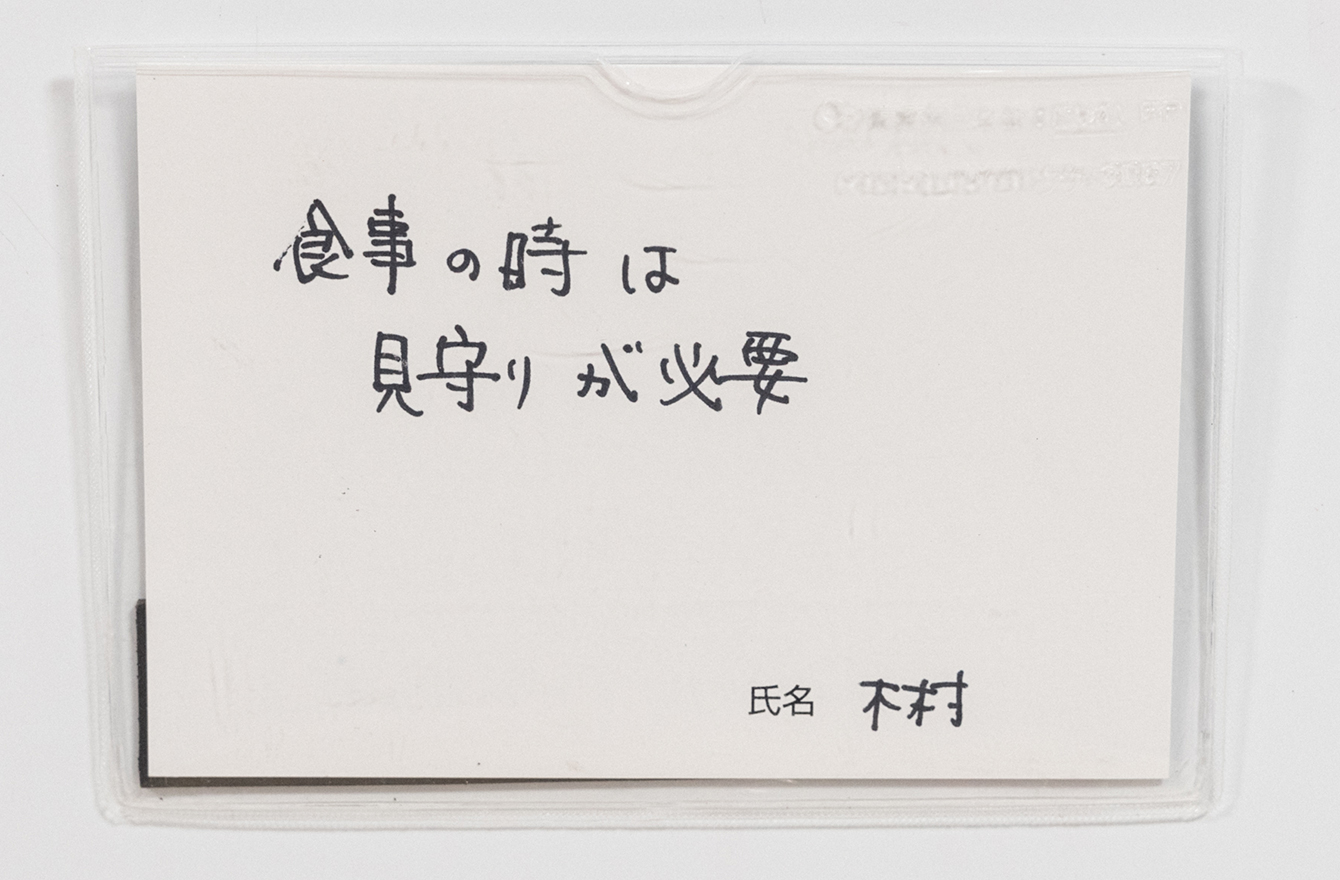 食事の時は
見守りが必要
氏名 木村